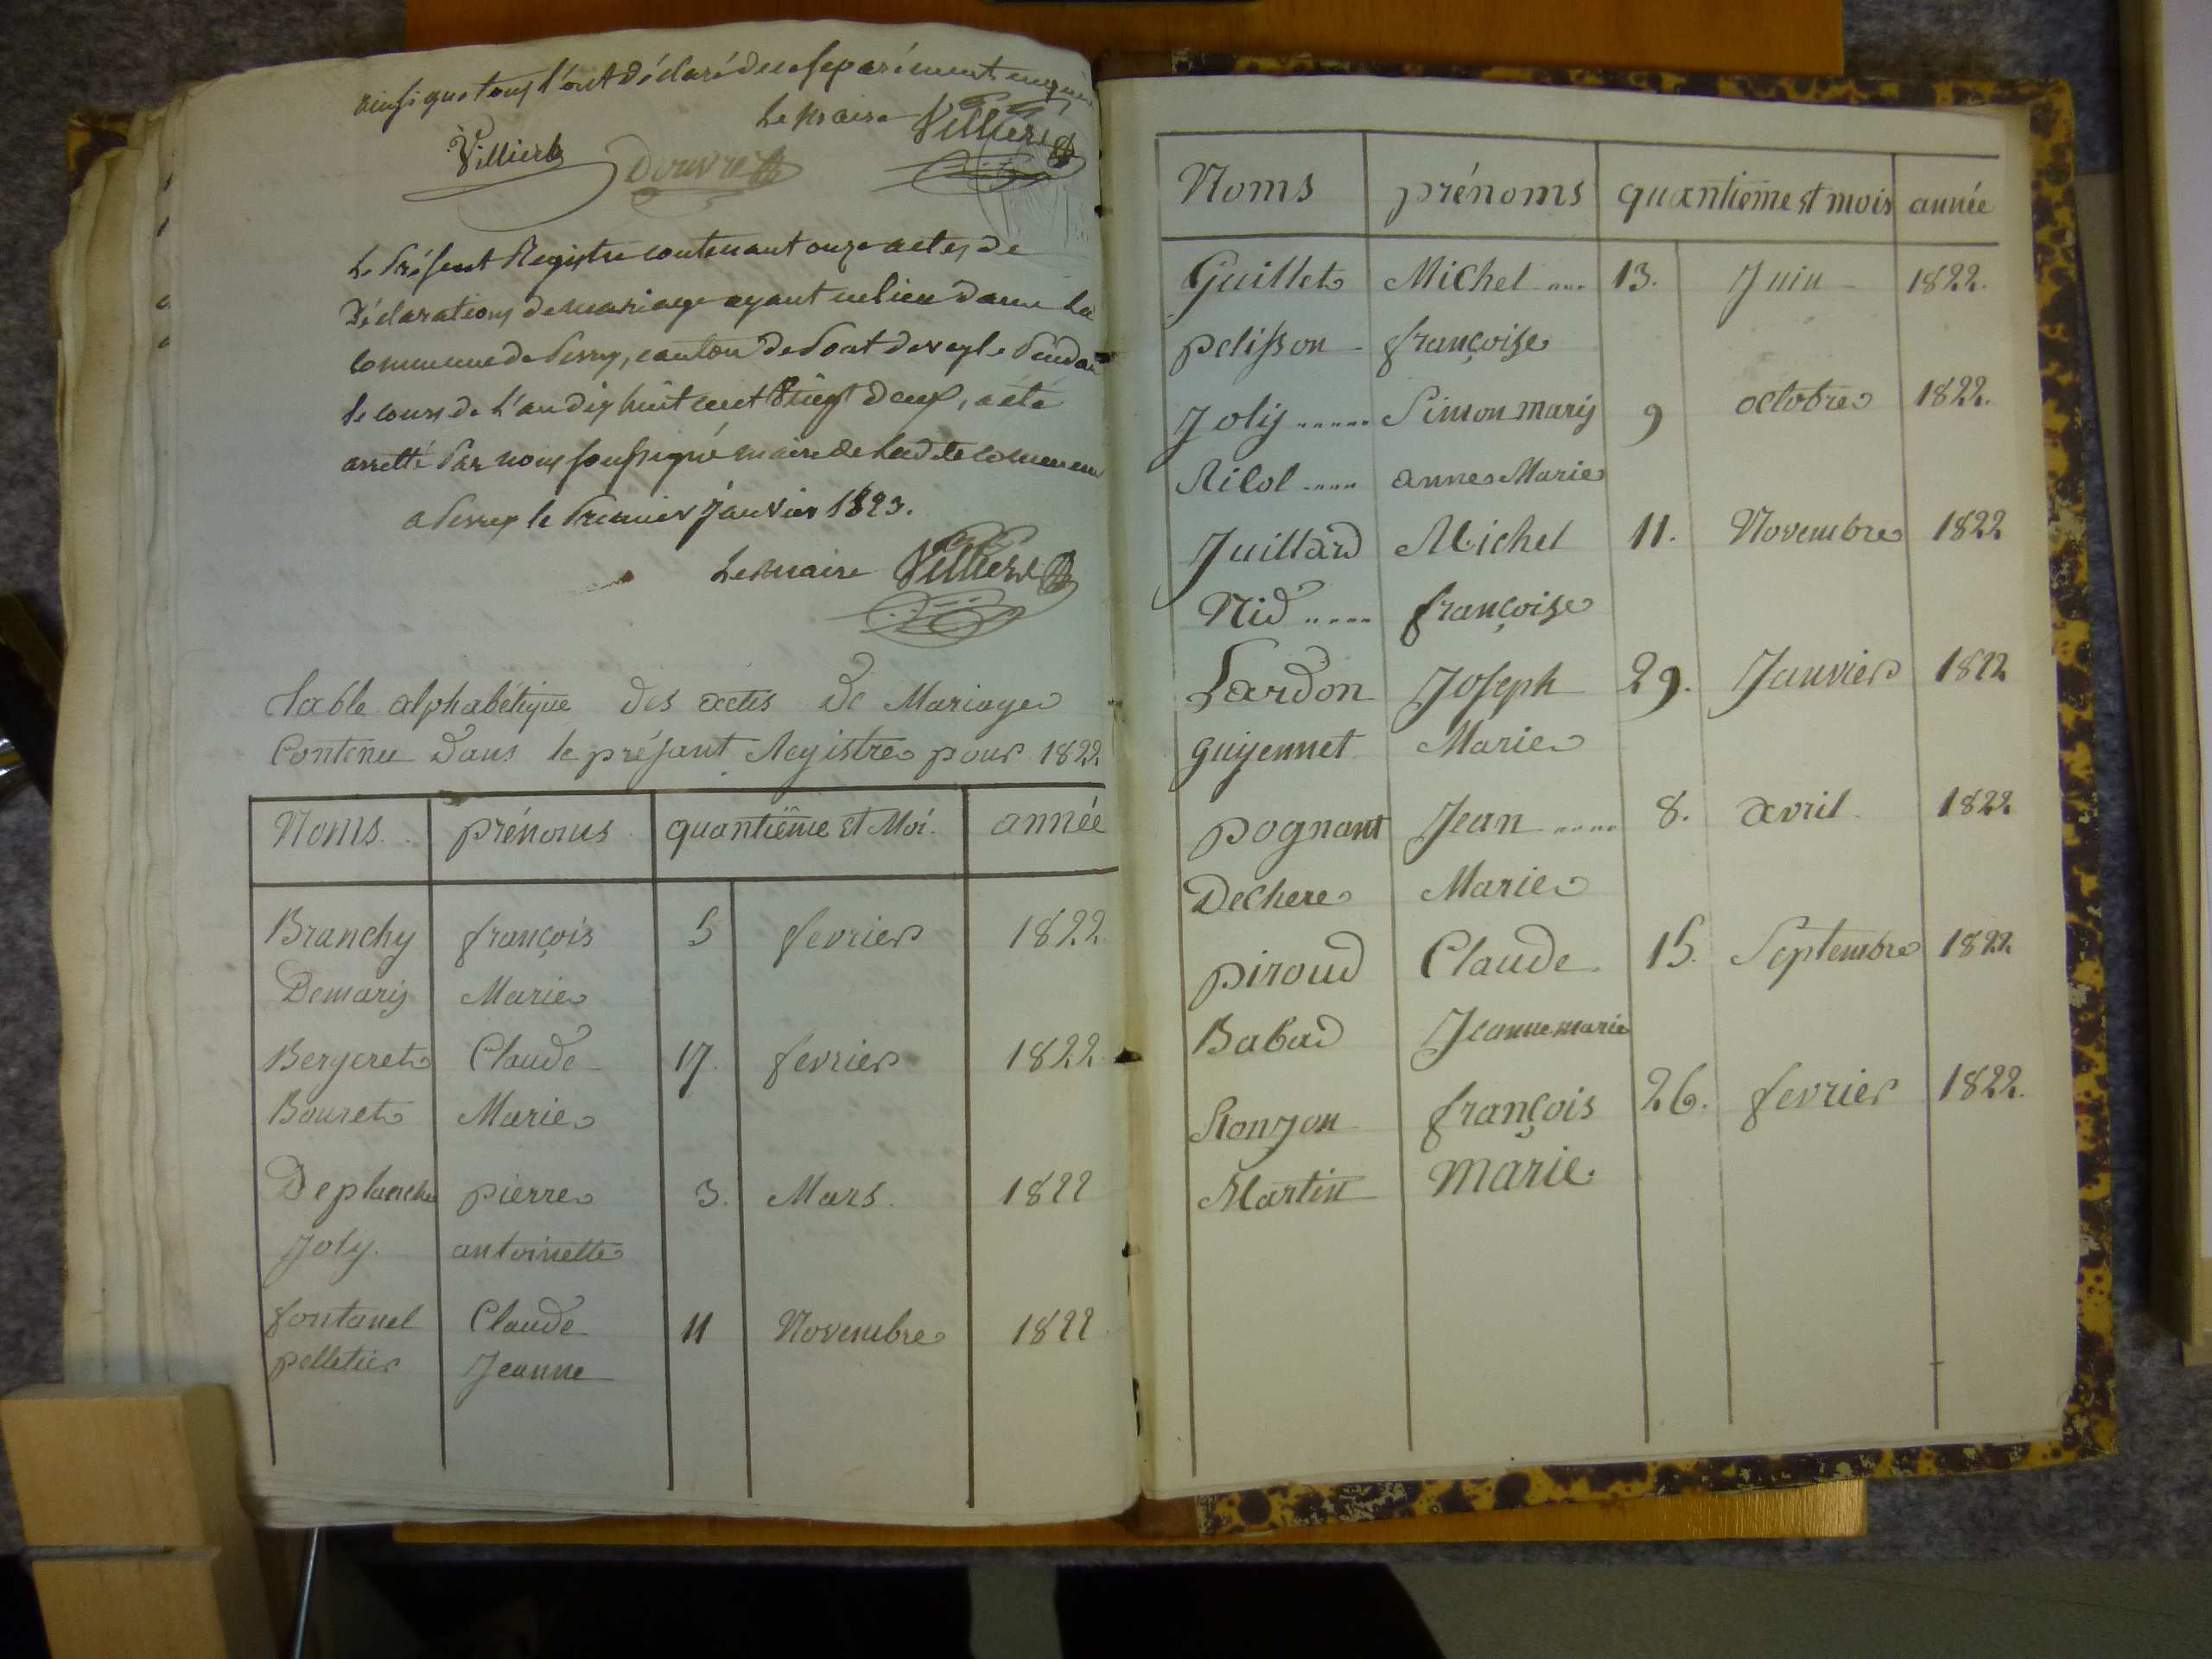 ainsi que tous l'ont déclaré de ce séparément enquis
Le maire Villierd
Villierd Douvret
Le présent Registre contenant onze actes de
Déclarations de mariage ayant eu lieu dans la
commune de Perrex, canton de Pont de veyle Pendan
le cours de L'an dix huit cent Vingt Deux, a été
arretté Par nous soussigné maire de Lad.te commune
a Perrex le Premier Janvier 1823.
Le maire Villierd
Table alphabétique des actes De Mariage
Contenu Dans le présant Registre pour 1822
Noms. prénoms quantiême et Moi. année
Branchy françois 5 fevrier 1822
Demary Marie
Bergeret Claude 17. fevrier 1822
Bouret Marie
Deplanche pierre 3. Mars. 1822
Joly. antoinette
fontanel Claude 11 Novembre 1822
pelletier Jeanne
Noms prénoms quantieme et mois année
Guillet Michel .... 13. Juin 1822.
pelisson françoise
Joly ..... Simon mary 9 octobre 1822.
Rilol .... anne Marie
Juillard Michel 11. Novembre 1822
Nid ..... françoise
Lardon Joseph 29. Janvier 1822
guyennet Marie
pognant Jean .... 8. avril 1822
Dechere Marie
piroud Claude 15. Septembre 1822
Babad Jeanne marie
Ronzon françois 26. fevrier 1822.
Martin Marie